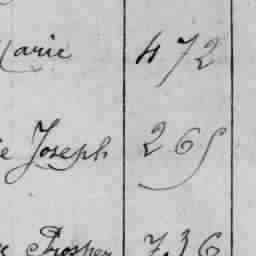 Marie 472
e Joseph 265
e Prosper 736